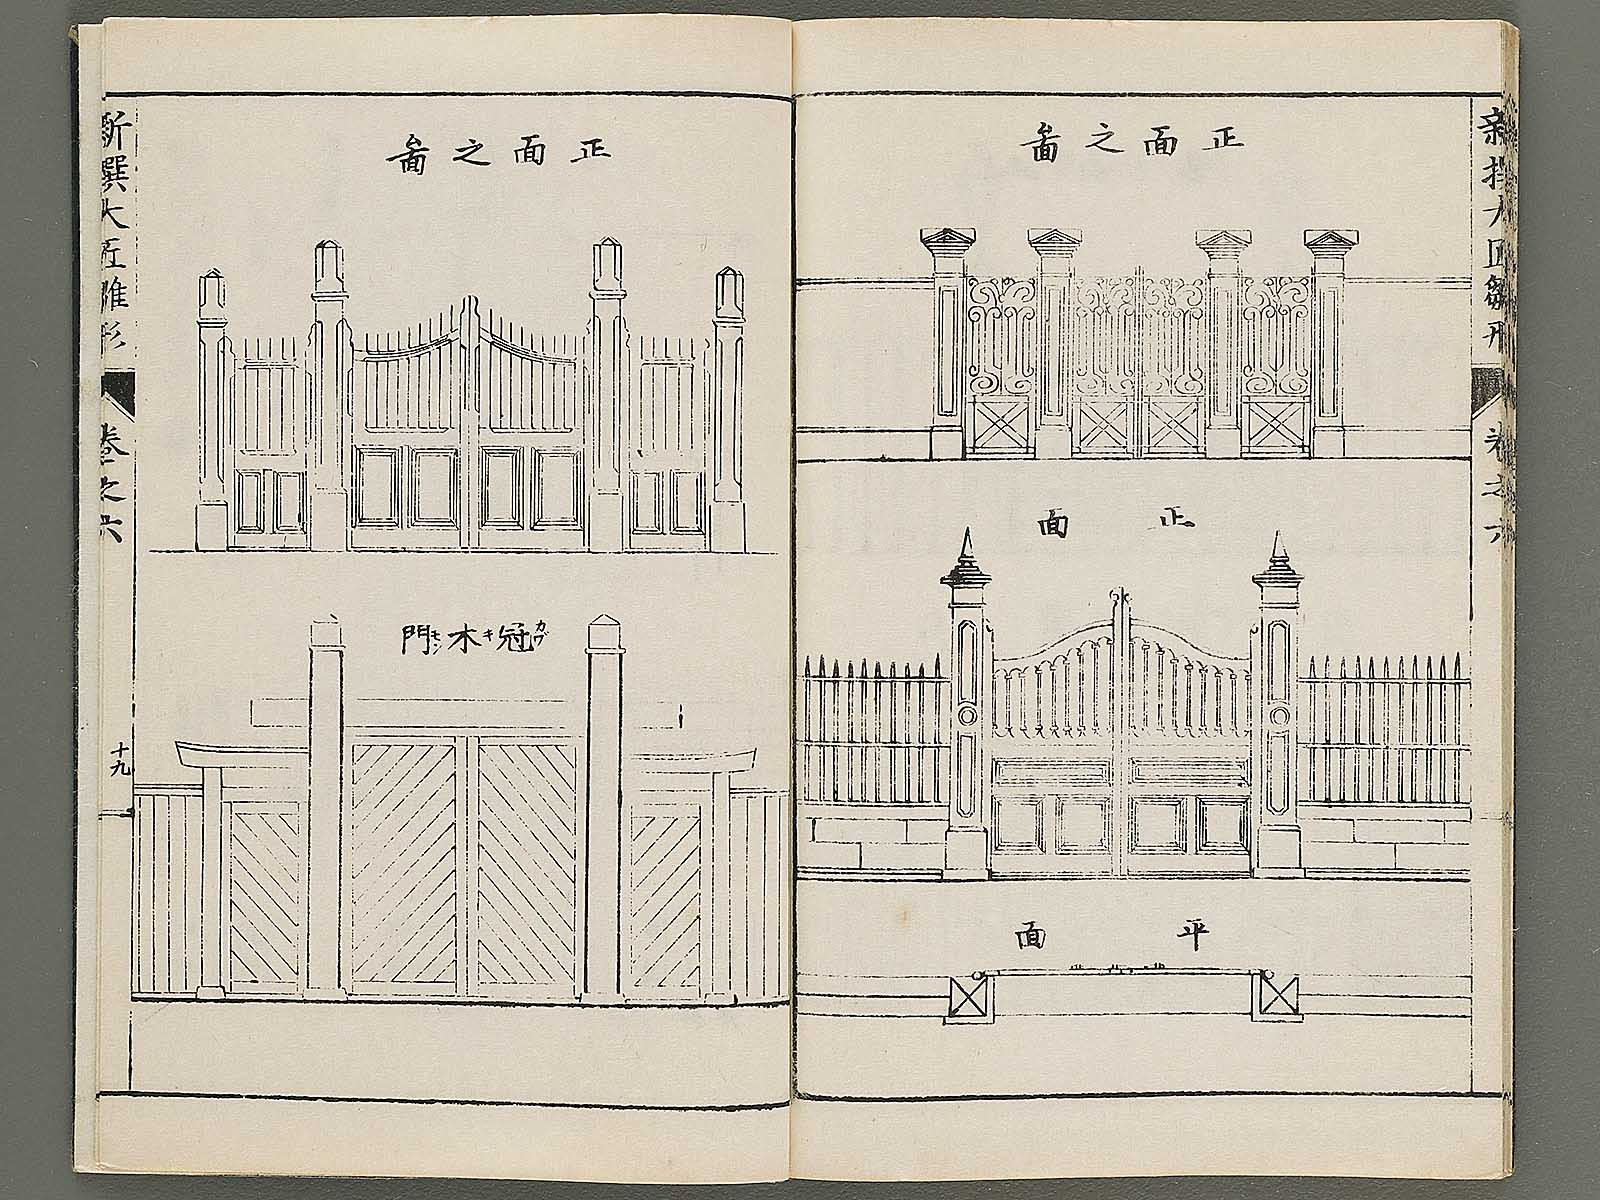 新撰大匠雛形
巻之六
正面之圖
正面
平面
正面之圖
冠木門
カブ
キ
モン
新撰大匠雛形
巻之六
十九